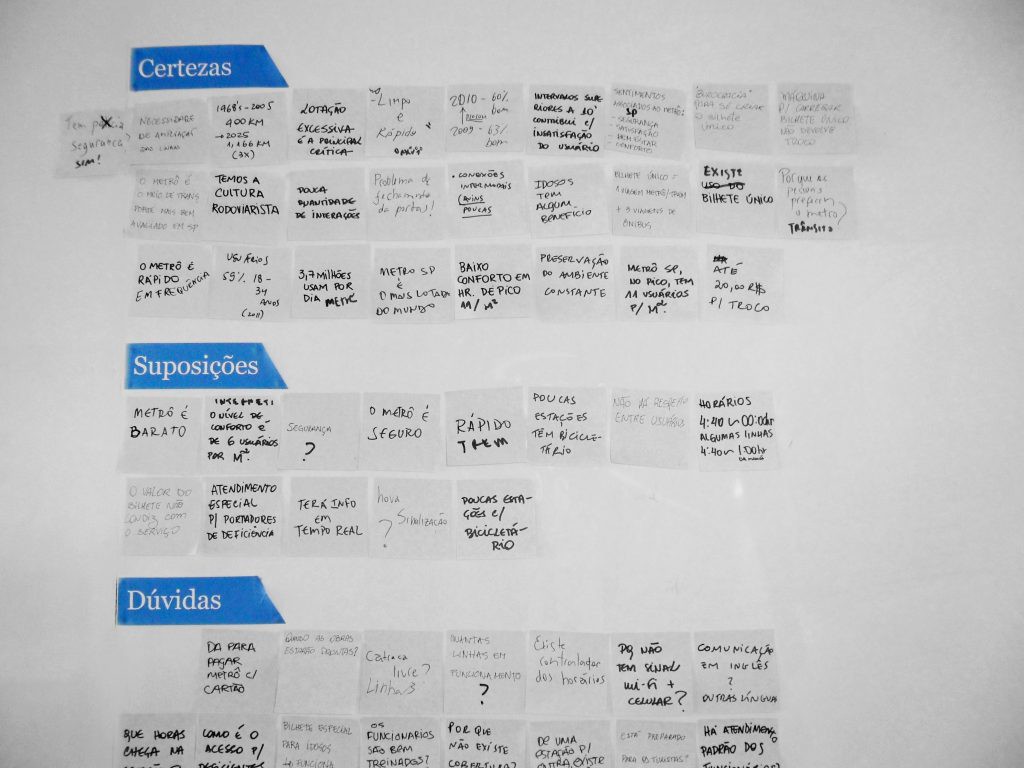 Certezas
Tem
Segurança
SIM!
NECESSIDADE
DE AMPLIAÇÃO
DAS LINHAS
1968's - 2005
400 KM
→ 2025
1,166 KM
(3X)
LOTAÇÃO
EXCESSIVA
É A PRINCIPAL
CRÍTICA
- Limpo
e
Rápido
2010 - 60%
bom
2009 - 63%
bom
INTERVALOS SUPE
RIORES A 10'
CONTRIBUI C/
INSATISFAÇÃO
DO USUÁRIO
SENTIMENTOS
ASSOCIADOS AO METRÔ:
SP
- SEGURANÇA
- SATISFAÇÃO
- BEM ESTAR
- CONFORTO
"BUROCRACIA"
PARA SE CRIAR
O BILHETE
ÚNICO
MÁQUINA
P/ CARREGAR
BILHETE ÚNICO
NÃO DEVOLVE
TROCO
O METRÔ É
O MEIO DE TRANS
PORTE MAIS BEM
AVALIADO EM SP
TEMOS A
CULTURA
RODOVIARISTA
POUCA
QUANTIDADE
DE INTERAÇÕES
Problema de
fechamento
da portas!
• CONEXÕES
INTERMODAIS
POUCAS
IDOSOS
TEM
ALGUM
BENEFÍCIO
BILHETE ÚNICO =
1 VIAGEM METRÔ/TREM
+ 3 VIAGENS DE
ÔNIBUS
EXISTE
USO DO
BILHETE ÚNICO
Por que as
pessoas
preferem
o metro?
TRÂNSITO
O METRÔ É
RÁPIDO
EM FREQUÊNCIA
USUÁRIOS
55% 18 -
34
ANOS
(2011)
3,7 MILHÕES
USAM POR
DIA METRÔ
METRO SP
É
O MAIS LOTADO
DO MUNDO
BAIXO
CONFORTO EM
HR. DE PICO
11/M²
PRESERVAÇÃO
DO AMBIENTE
CONSTANTE
METRÔ SP,
NO PICO, TEM
11 USUÁRIOS
P/ M²
ATÉ
20,00 R$
P/ TROCO
Suposições
METRÔ É
BARATO
O NÍVEL DE
CONFORTO É
DE 6 USUÁRIOS
POR M²
SEGURANÇA
?
O METRÔ É
SEGURO
RÁPIDO
TREM
POUCAS
ESTAÇÕES
TÊM BICICLE-
TÁRIO
NÃO HÁ RESPEITO
ENTRE USUÁRIOS
HORÁRIOS
4:40 ~ 00:00hr
ALGUMAS LINHAS
4:40 ~ 1:00hr
DA MANHÃ
O VALOR DO
BILHETE NÃO
CONDIZ COM
O SERVIÇO
ATENDIMENTO
ESPECIAL
P/ PORTADORES
DE DEFICIÊNCIA
TERÁ INFO
EM
TEMPO REAL
nova
Sinalização
?
POUCAS ESTA-
ÇÕES C/
BICICLETÁ-
RIO
Dúvidas
DA PARA
PAGAR
METRÔ C/
CARTÃO
QUANDO AS OBRAS
ESTARÃO PRONTAS?
Catraca
livre?
Linha 3
QUANTAS
LINHAS EM
FUNCIONAMENTO
?
Existe
controlador
dos horários
PQ NÃO
TEM SINAL
Wi-Fi +
CELULAR?
COMUNICAÇÃO
EM INGLÊS
?
OUTRAS LÍNGUAS
QUE HORAS
CHEGA NA
COMO É O
ACESSO P/
DEFICIENTES
BILHETE ESPECIAL
PARA IDOSOS
FUNCIONA
OS
FUNCIONÁRIOS
SÃO BEM
TREINADOS?
POR QUE
NÃO EXISTE
COBERTURA?
DE UMA
ESTAÇÃO P/
OUTRA EXISTE
ESTÁ PREPARADO
PARA OS TURISTAS?
HÁ ATENDIMENTO
PADRÃO DOS
FUNCIONÁRIOS?